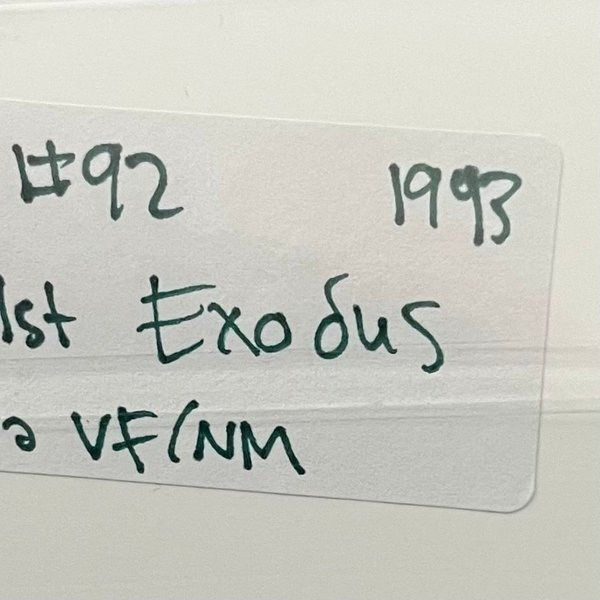 #92 1993
1st Exodus
VF/NM